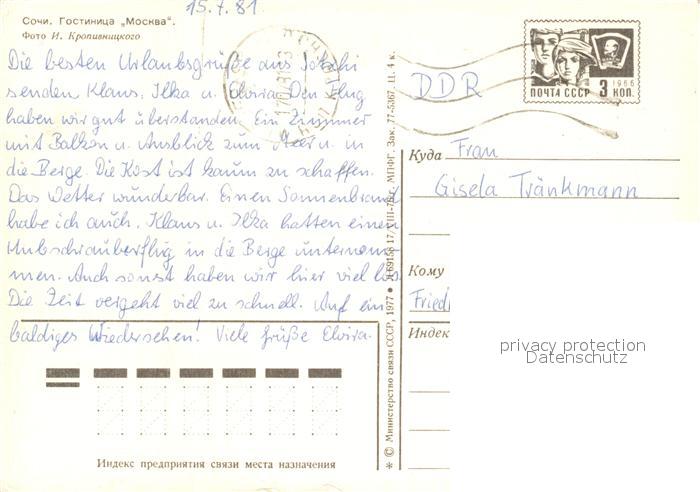 15.7.81
Сочи. Гостиница „Москва“.
Фото И. Кропивницкого
Die besten Urlaubsgrüße aus Sotschi
senden Klaus, Ilka u. Elvira. Den Flug
haben wir gut überstanden. Ein Zimmer
mit Balkon u. Ausblick zum Meer u. in
die Berge. Die Kost ist kaum zu schaffen.
Das Wetter wunderbar. Einen Sonnenbrand
habe ich auch. Klaus u. Ilka hatten einen
Hubschrauberflug in die Berge unternom-
men. Auch sonst haben wir hier viel los
Die Zeit vergeht viel zu schnell. Auf ein
baldiges Wiedersehen! Viele Grüße Elvira.
Индекс предприятия связи места назначения
* © Министерство связи СССР, 1977 ● 17/VIII-76 г. МПФГ. Зак. 77-5367. Ц. 4 к.
ПОЧТА СССР 3 КОП.
1966
DDR
Куда Frau
Gisela Tränkmann
Кому
Friedr
Индекс
privacy protection
Datenschutz